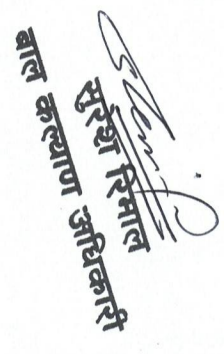 सुरेश रिमाल
बाल कल्याण अधिकारी